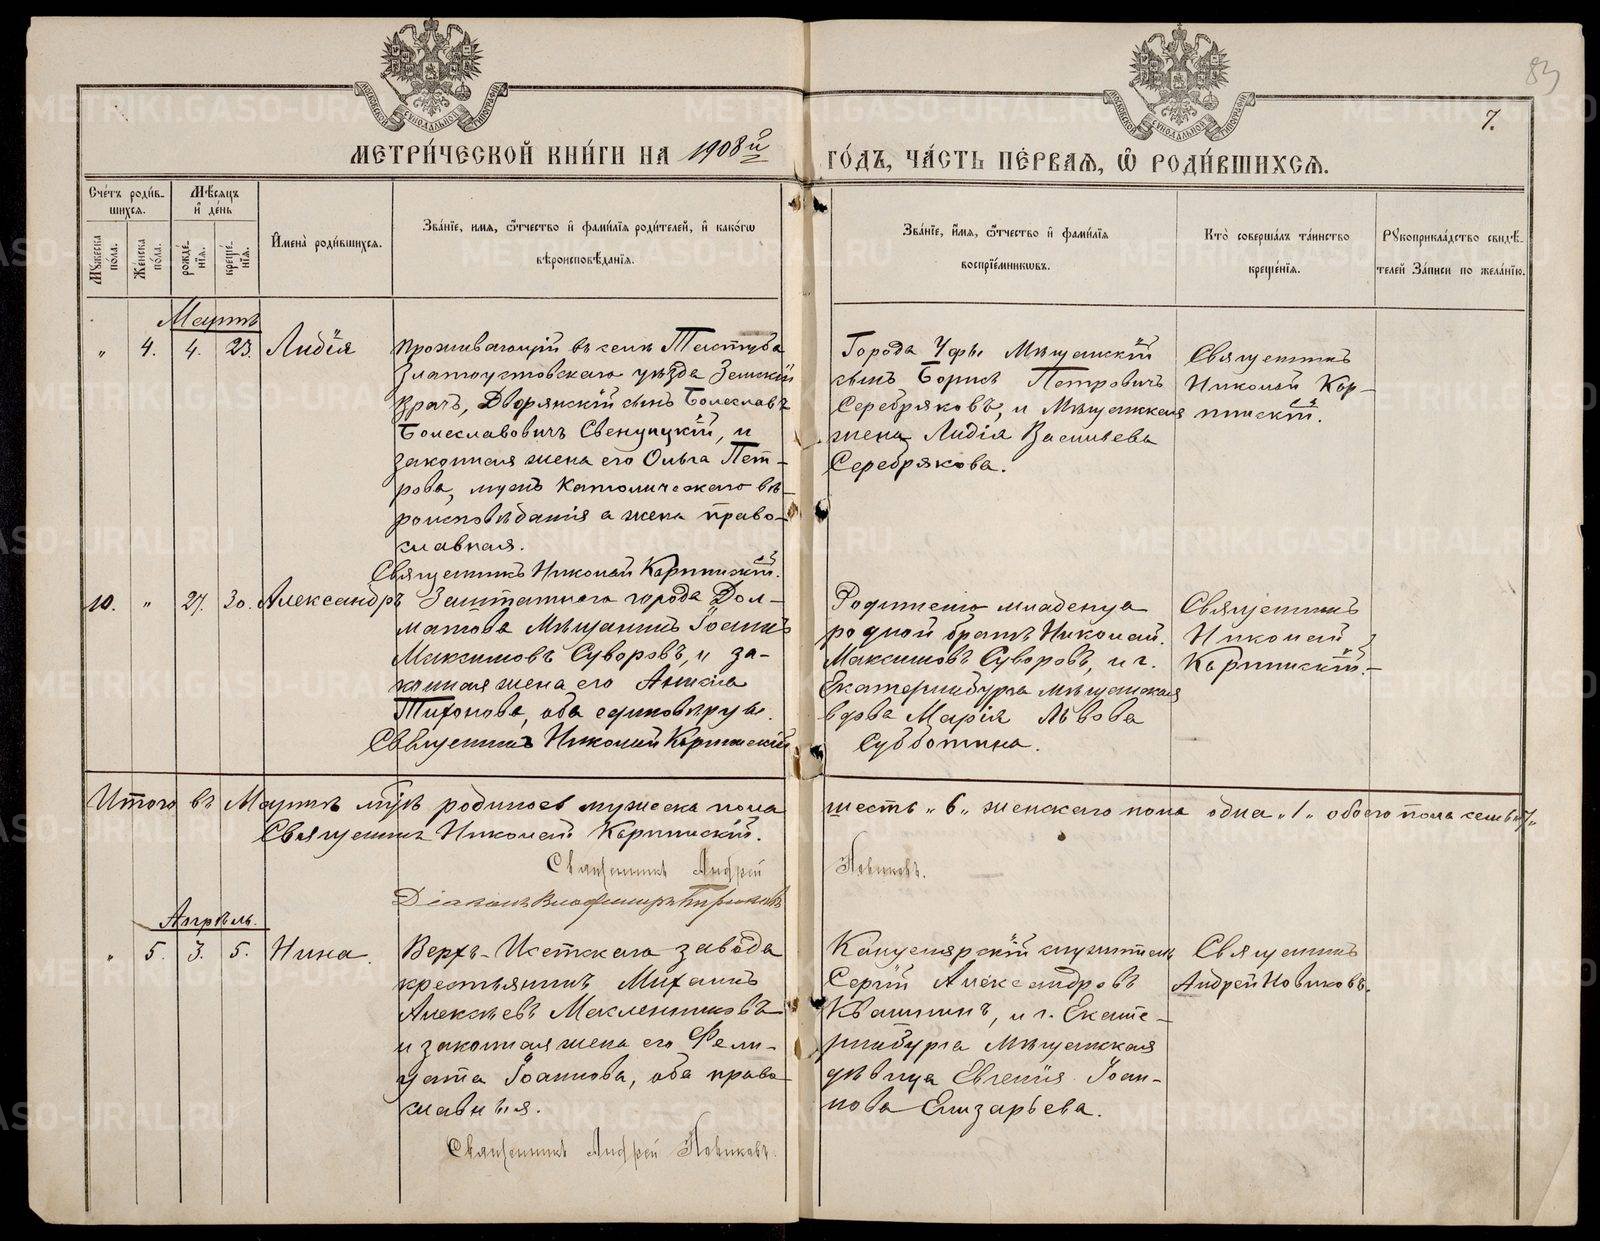 83
7.
МОСКОВСКОЙ СѴНОДАЛЬНОЙ ТИПОГРАФІИ
МОСКОВСКОЙ СѴНОДАЛЬНОЙ ТИПОГРАФІИ
МЕТРИ́ЧЕСКОЙ КНИ́ГИ НА 1908й
ГО́ДЪ, ЧА́СТЬ ПЕ́РВАѦ, Ѡ҆ РОДИ́ВШИХСѦ.
Сче́тъ роди́в-
шихся.
Мѣ́сяцъ
и҆ де́нь
Мꙋжеска
по́ла.
Же́нска
по́ла.
рожде́-
нїя.
креще́-
нїя.
И҆мена̀ роди́вшихся.
Зва́нїе, имя, ѻ҆́тчество и҆ фами́лїя роди́телей, и҆ како́гѡ
вѣроисповѣ́данїя.
Зва́нїе, и҆́мя, ѻ҆́тчество и҆ фами́лїя
воспрїе́мникѡвъ.
Кто̀ соверша́лъ та́инство
креще́нїя.
Рꙋкоприкла́дство свидѣ́-
телей За́писи по жела́нїю.
Мартъ
„ 4. 4. 23. Лидія
Проживающій въ селѣ Тастуба
Златоустовскаго уѣзда Земскій
врачъ, Дворянскій сынъ Болеславъ
Болеславовичъ Свенцицкій, и
законная жена его Ольга Пет-
рова, мужъ Католическаго вѣ-
роисповѣданія а жена право-
славная.
Священникъ Николай Карпинскій.
Города Уфы Мѣщанскій
сынъ Борисъ Петровичъ
Серебряковъ, и Мѣщанская
жена Лидія Васильева
Серебрякова.
Священникъ
Николай Кар-
пинскій.
10. „ 27. 30. Александръ
Заштатнаго города Дол-
матова Мѣщанинъ Іоаннъ
Максимовъ Суворовъ, и за-
конная жена его Анисія
Тихонова, оба единовѣрцы.
Священникъ Николай Карпинскій
Родителю младенца
родной братъ Николай
Максимовъ Суворовъ, и г.
Екатеринбурга мѣщанская
вдова Марія Львова
Субботина.
Священникъ
Николай
Карпинскій.
Итого въ Мартѣ м҃цѣ родилось мужеска пола
шесть „6„ женскаго пола одна „1„ обоего пола семь „7„
Священникъ Николай Карпинскій.
Священникъ Андрей
Новиковъ.
Діаконъ Владиміръ
Апрѣль.
„ 5. 3. 5. Нина.
Верхъ-Исетскаго завода
крестьянинъ Михаилъ
Алексѣевъ Масленниковъ
и законная жена его Фели-
цата Іоаннова, оба право
славныя.
Священникъ Андрей Новиковъ.
Канцелярскій служитель
Сергій Александровъ
Квашнинъ, и г. Екате-
ринбурга Мѣщанская
дѣвица Евгенія Іоан-
нова Елизарьева.
Священникъ
Андрей Новиковъ.
METRIKI.GASO-URAL.RU